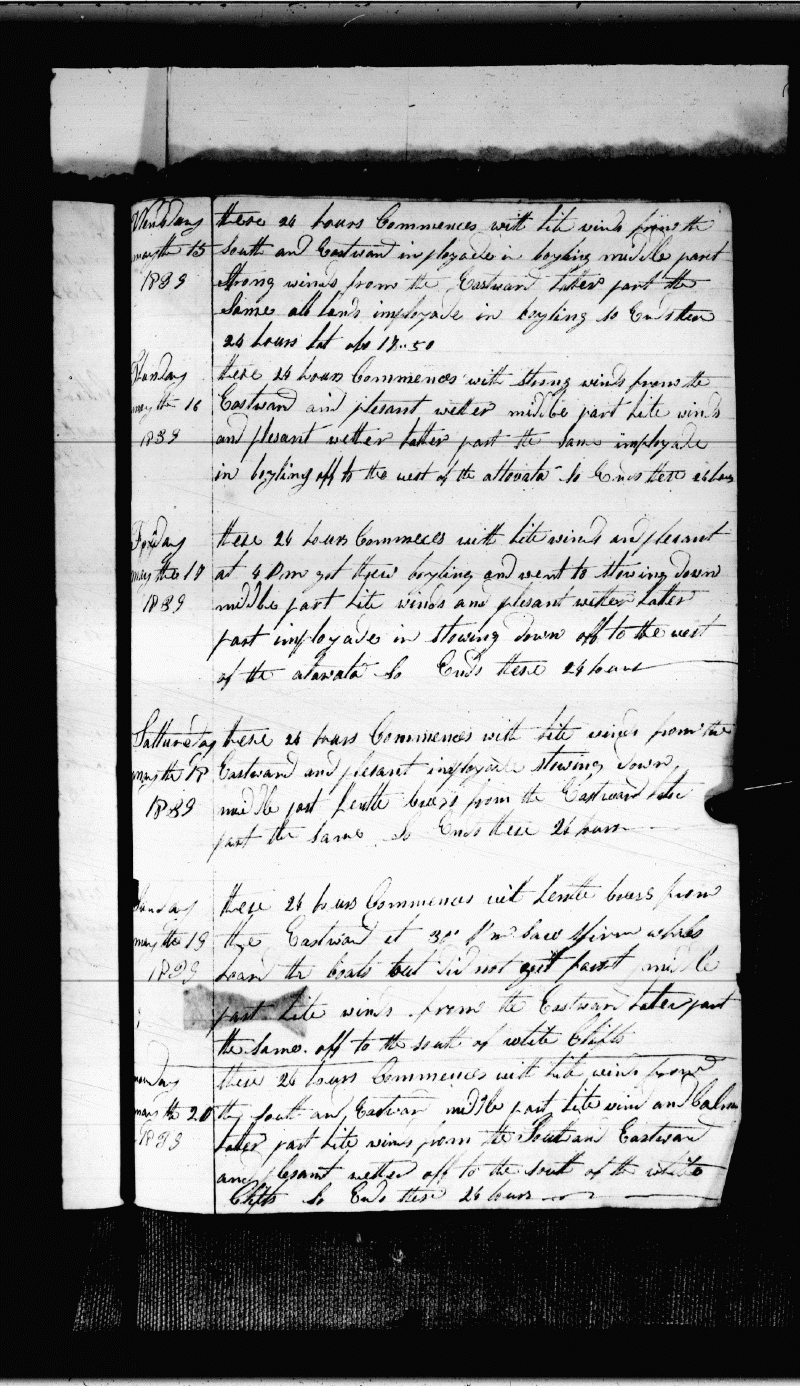 Wensday these 24 hours Commences with lite winds from the
may the 15 South and Eastward imployade in boyling middle part
1839 strong winds from the Eastward later part the
Same all hands imployade in boyling so Ends these
24 hours lat obs 12..50
Thursday these 24 hours Commences with strong winds from the
may the 16 Eastward and plesant wetter middle part lite winds
1839 and plesant wetter latter part the same imployade
in boyling off to the west of the so Ends these 24 hours
Friday these 24 hours Commeces with lite winds and plesant
may the 17 at 4 P m got threw boyling and went to stowing down
1839 middle part lite winds and plesant wetter latter
part imployade in stowing down off to the west
of the so Ends these 24 hours
Satturday these 24 hours Commences with lite winds from the
may the 18 Eastward and plesant imployade stowing down
1839 middle part from the Eastward later
part the same so Ends these 24 hours
Sunday these 24 hours Commences wit from
may the 19 the Eastward at P m saw spirm whales
1839 the boats but did not get middle
part lite winds from the Eastward later part
the same off to the south of white Clifts
monday these 24 hours Commences with lite winds from
may the 20 the south and Eastward middle part lite wind and Calm
1839 later part lite winds from the South and Eastward
and plesant wetter off to the south of the white
Clifts so Ends these 24 hours